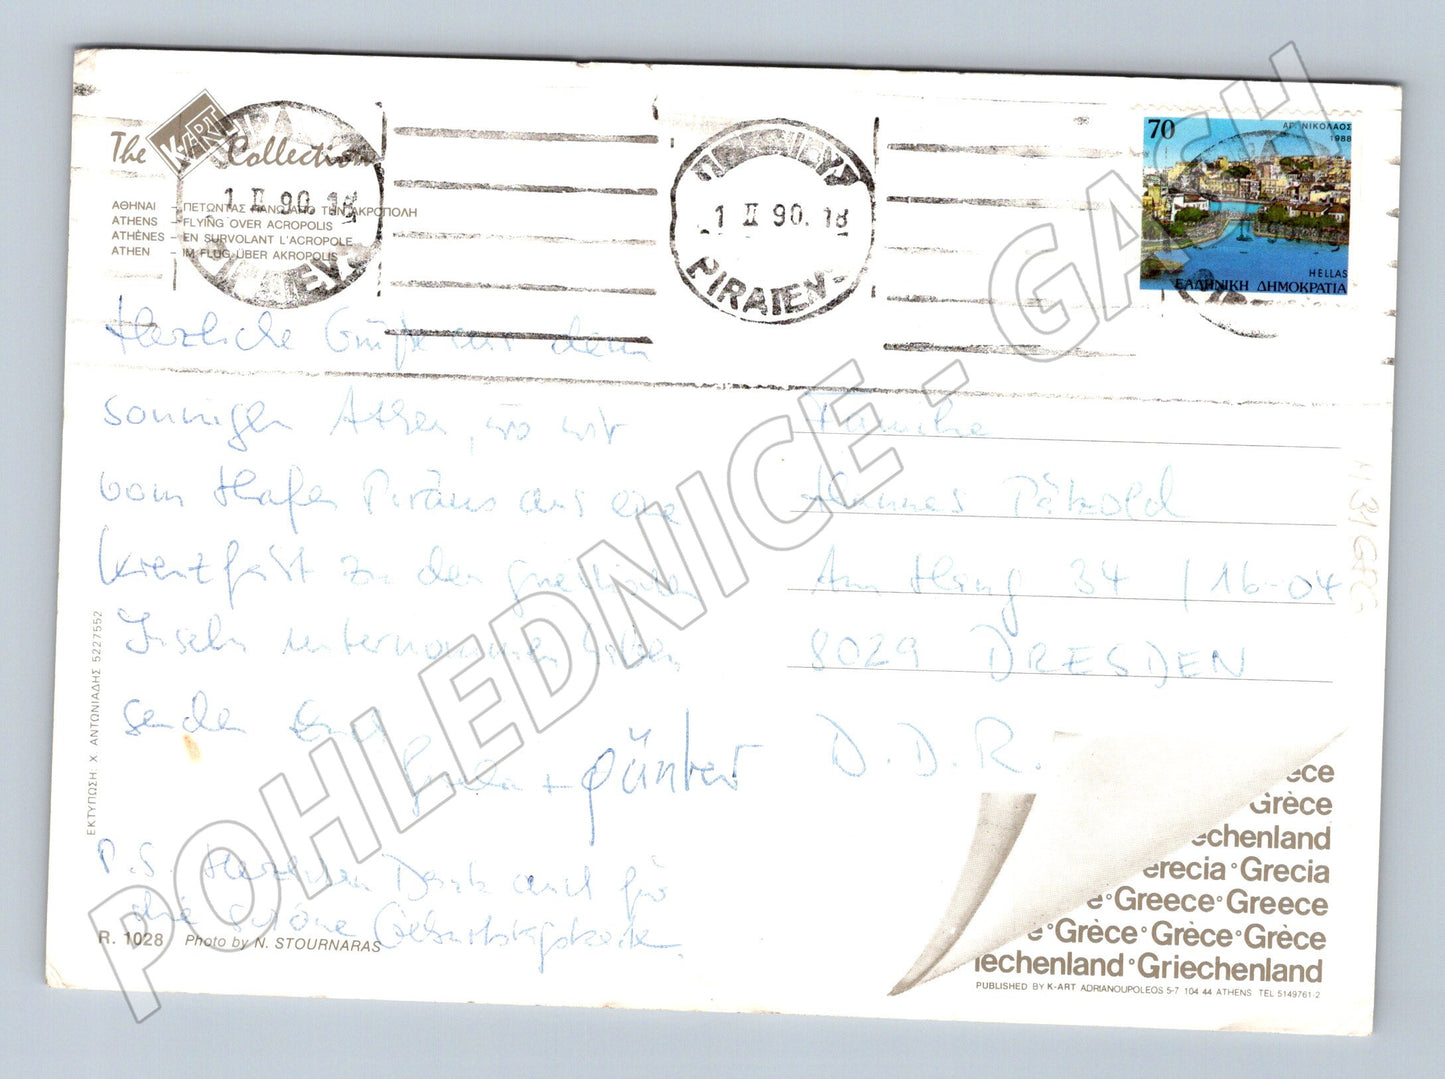 The K-ART Collection
ΑΘΗΝΑΙ - ΠΕΤΩΝΤΑΣ ΠΑΝΩ ΑΠΟ ΤΗΝ ΑΚΡΟΠΟΛΗ
ATHENS - FLYING OVER ACROPOLIS
ATHÈNES - EN SURVOLANT L'ACROPOLE
ATHEN - IM FLUG ÜBER AKROPOLIS
1 II 90. 18
PIRAIEVS
1 II 90. 18
PIRAIEVS
70
ΑΓ. ΝΙΚΟΛΑΟΣ
1988
HELLAS
ΕΛΛΗΝΙΚΗ ΔΗΜΟΚΡΑΤΙΑ
Herzliche Grüße aus dem
sonnigen Athen, wo wir
vom Hafen Piräus aus eine
Kreuzfahrt zu den griechischen
Inseln unternommen haben
senden Euch
+ Günter
P.S. Herzlichen Dank auch für
die schöne Geburtstagskarte.
Familie
Hannes Pätzold
Am Hang 34 / 16-04
8029 DRESDEN
D. D. R.
ΕΚΤΥΠΩΣΗ: Χ ΑΝΤΩΝΙΑΔΗΣ 5227552
R. 1028 Photo by N. STOURNARAS
ece
Grèce
echenland
erecia°Grecia
e°Greece°Greece
e°Grèce°Grèce°Grèce
iechenland°Griechenland
PUBLISHED BY K-ART ADRIANOUPOLEOS 5-7 104 44 ATHENS TEL 5149761-2
POHLEDNICE - GASH